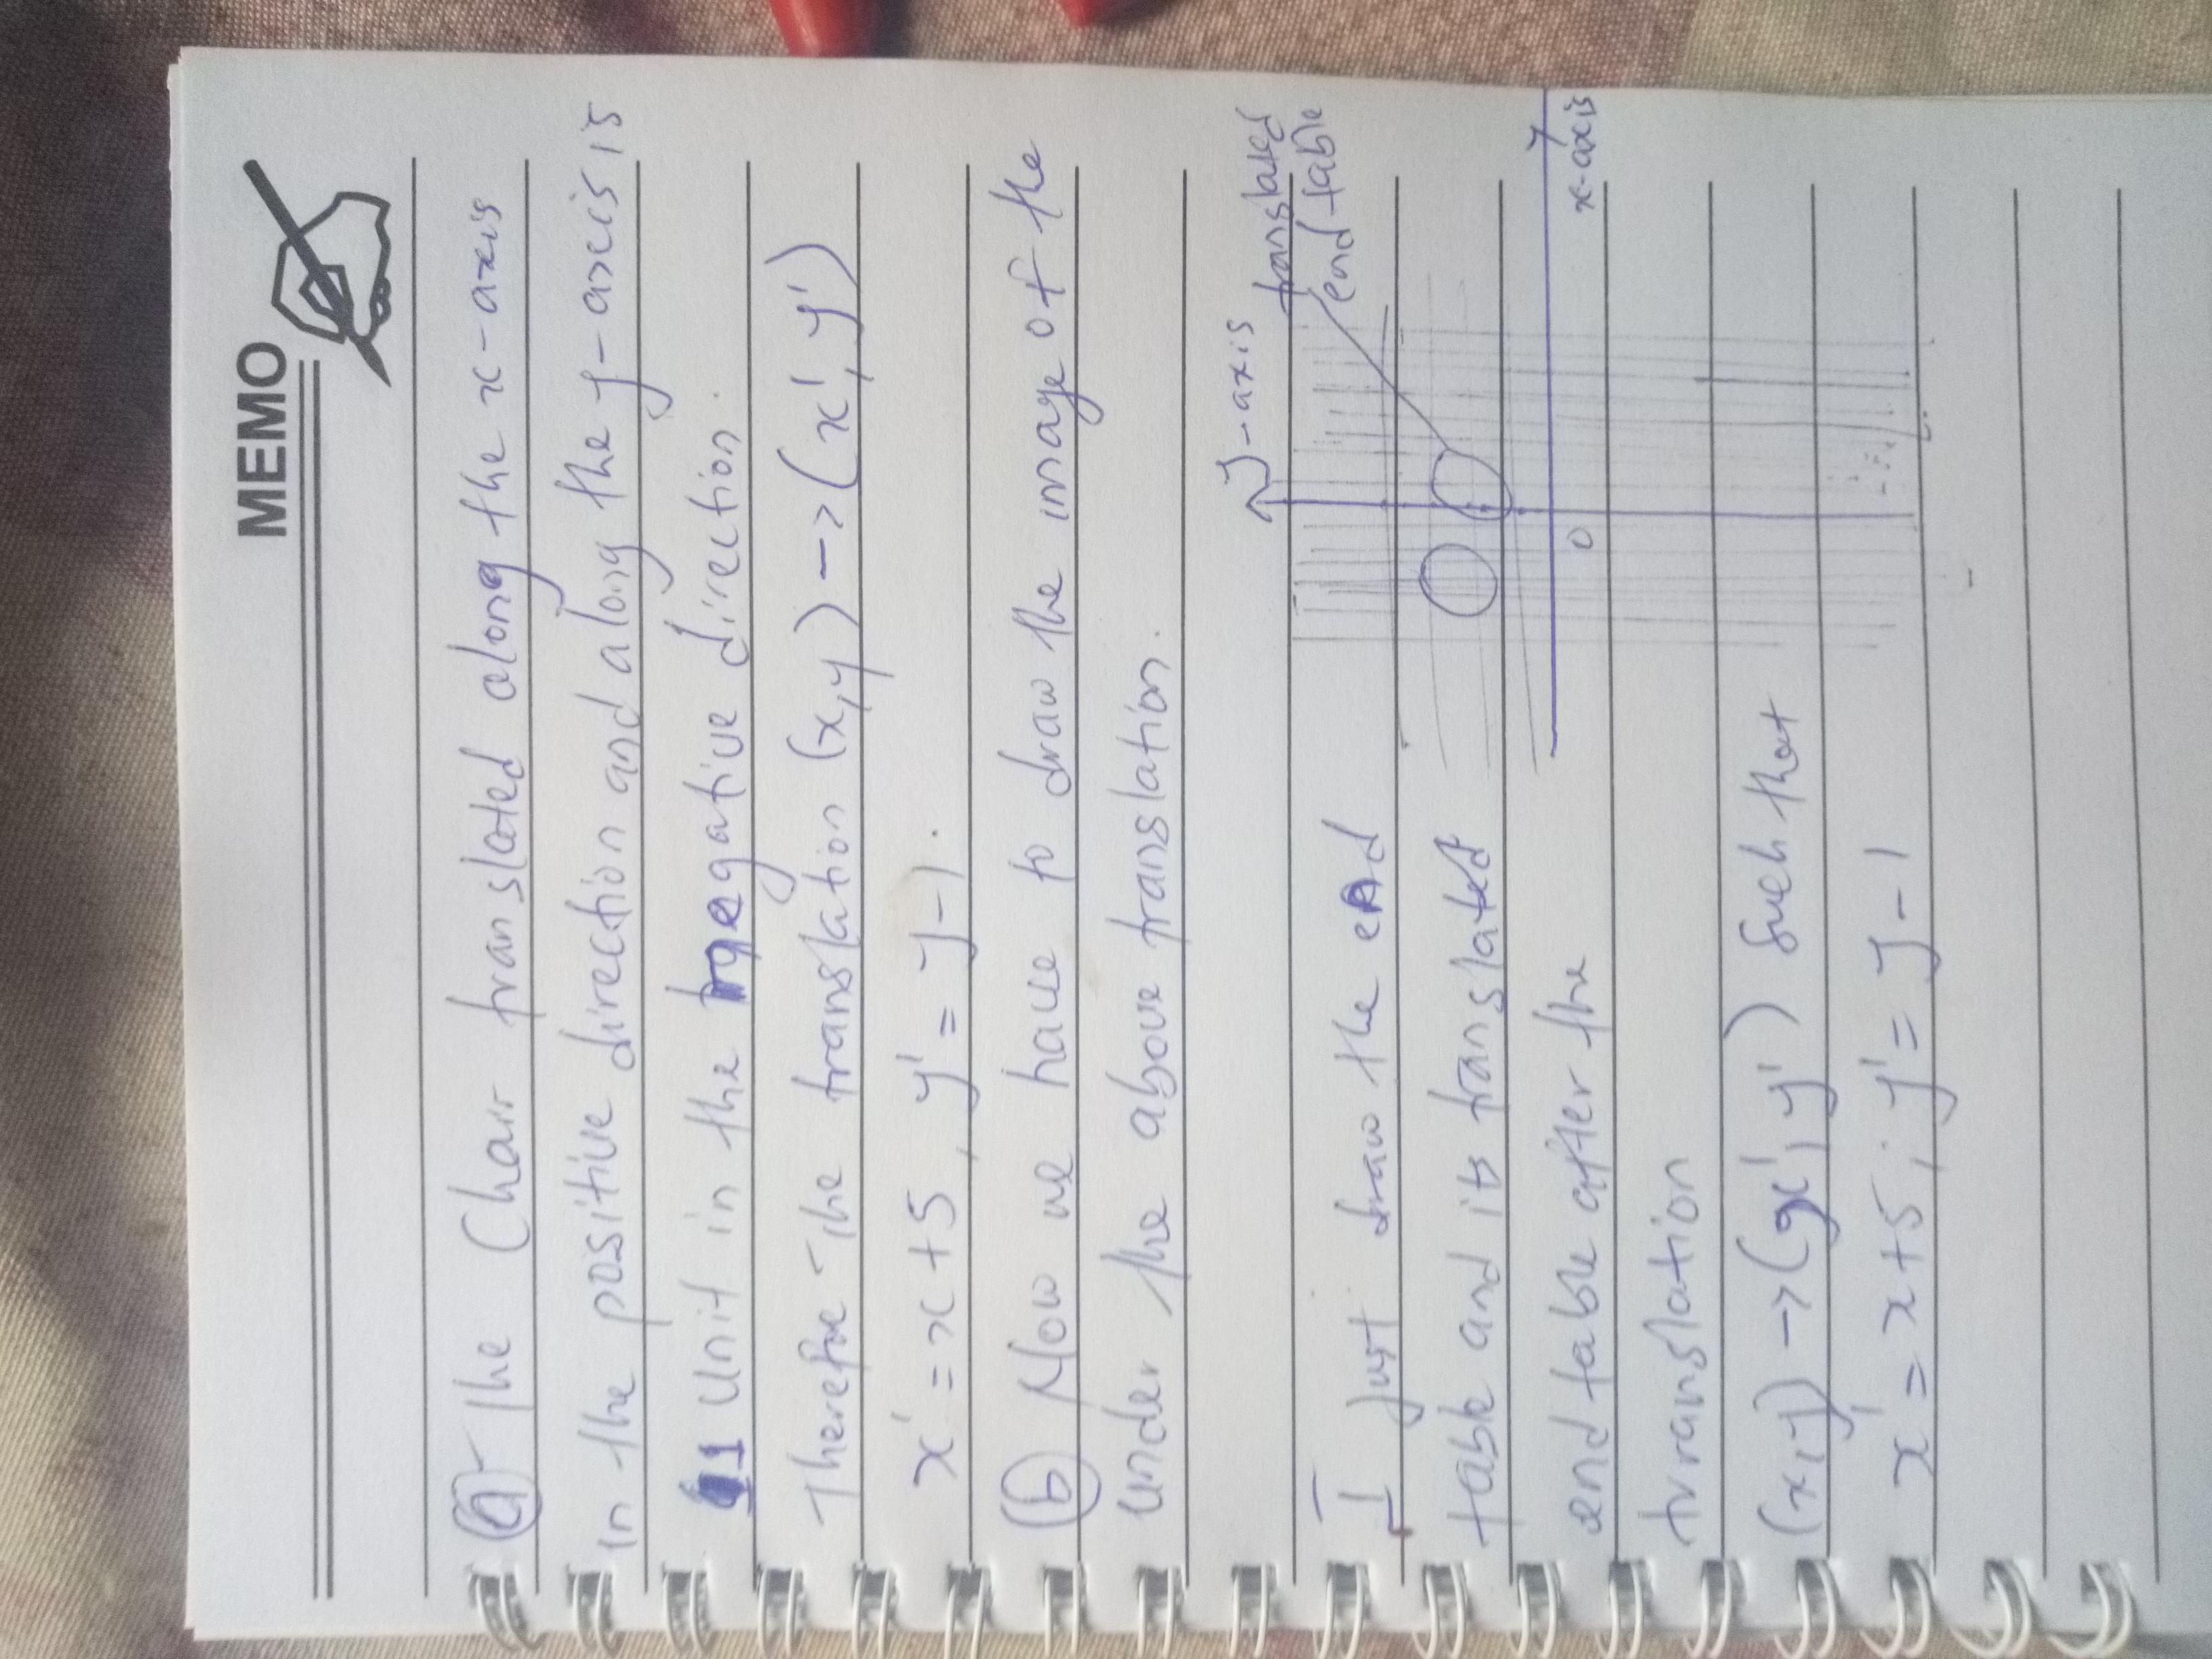 MEMO
(a) The Chair translated along the x-axis
in the positive direction and along the y-axis is
1 Unit in the negative direction.
Therefore the translation (x,y) -> (x', y')
x' = x + 5, y' = y-1.
(b) Now we have to draw the image of the
Under the above translation.
y-axis
translated
end table
I Just draw the end
table and its translated
end table after the
0
x-axis
translation
(x,y) -> (x', y') Such that
x' = x+5; y' = y-1